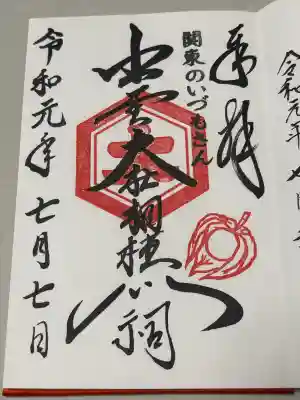 奉拝
関東のいづもさん
出雲大社相模分祠
令和元年七月七日
令和元年